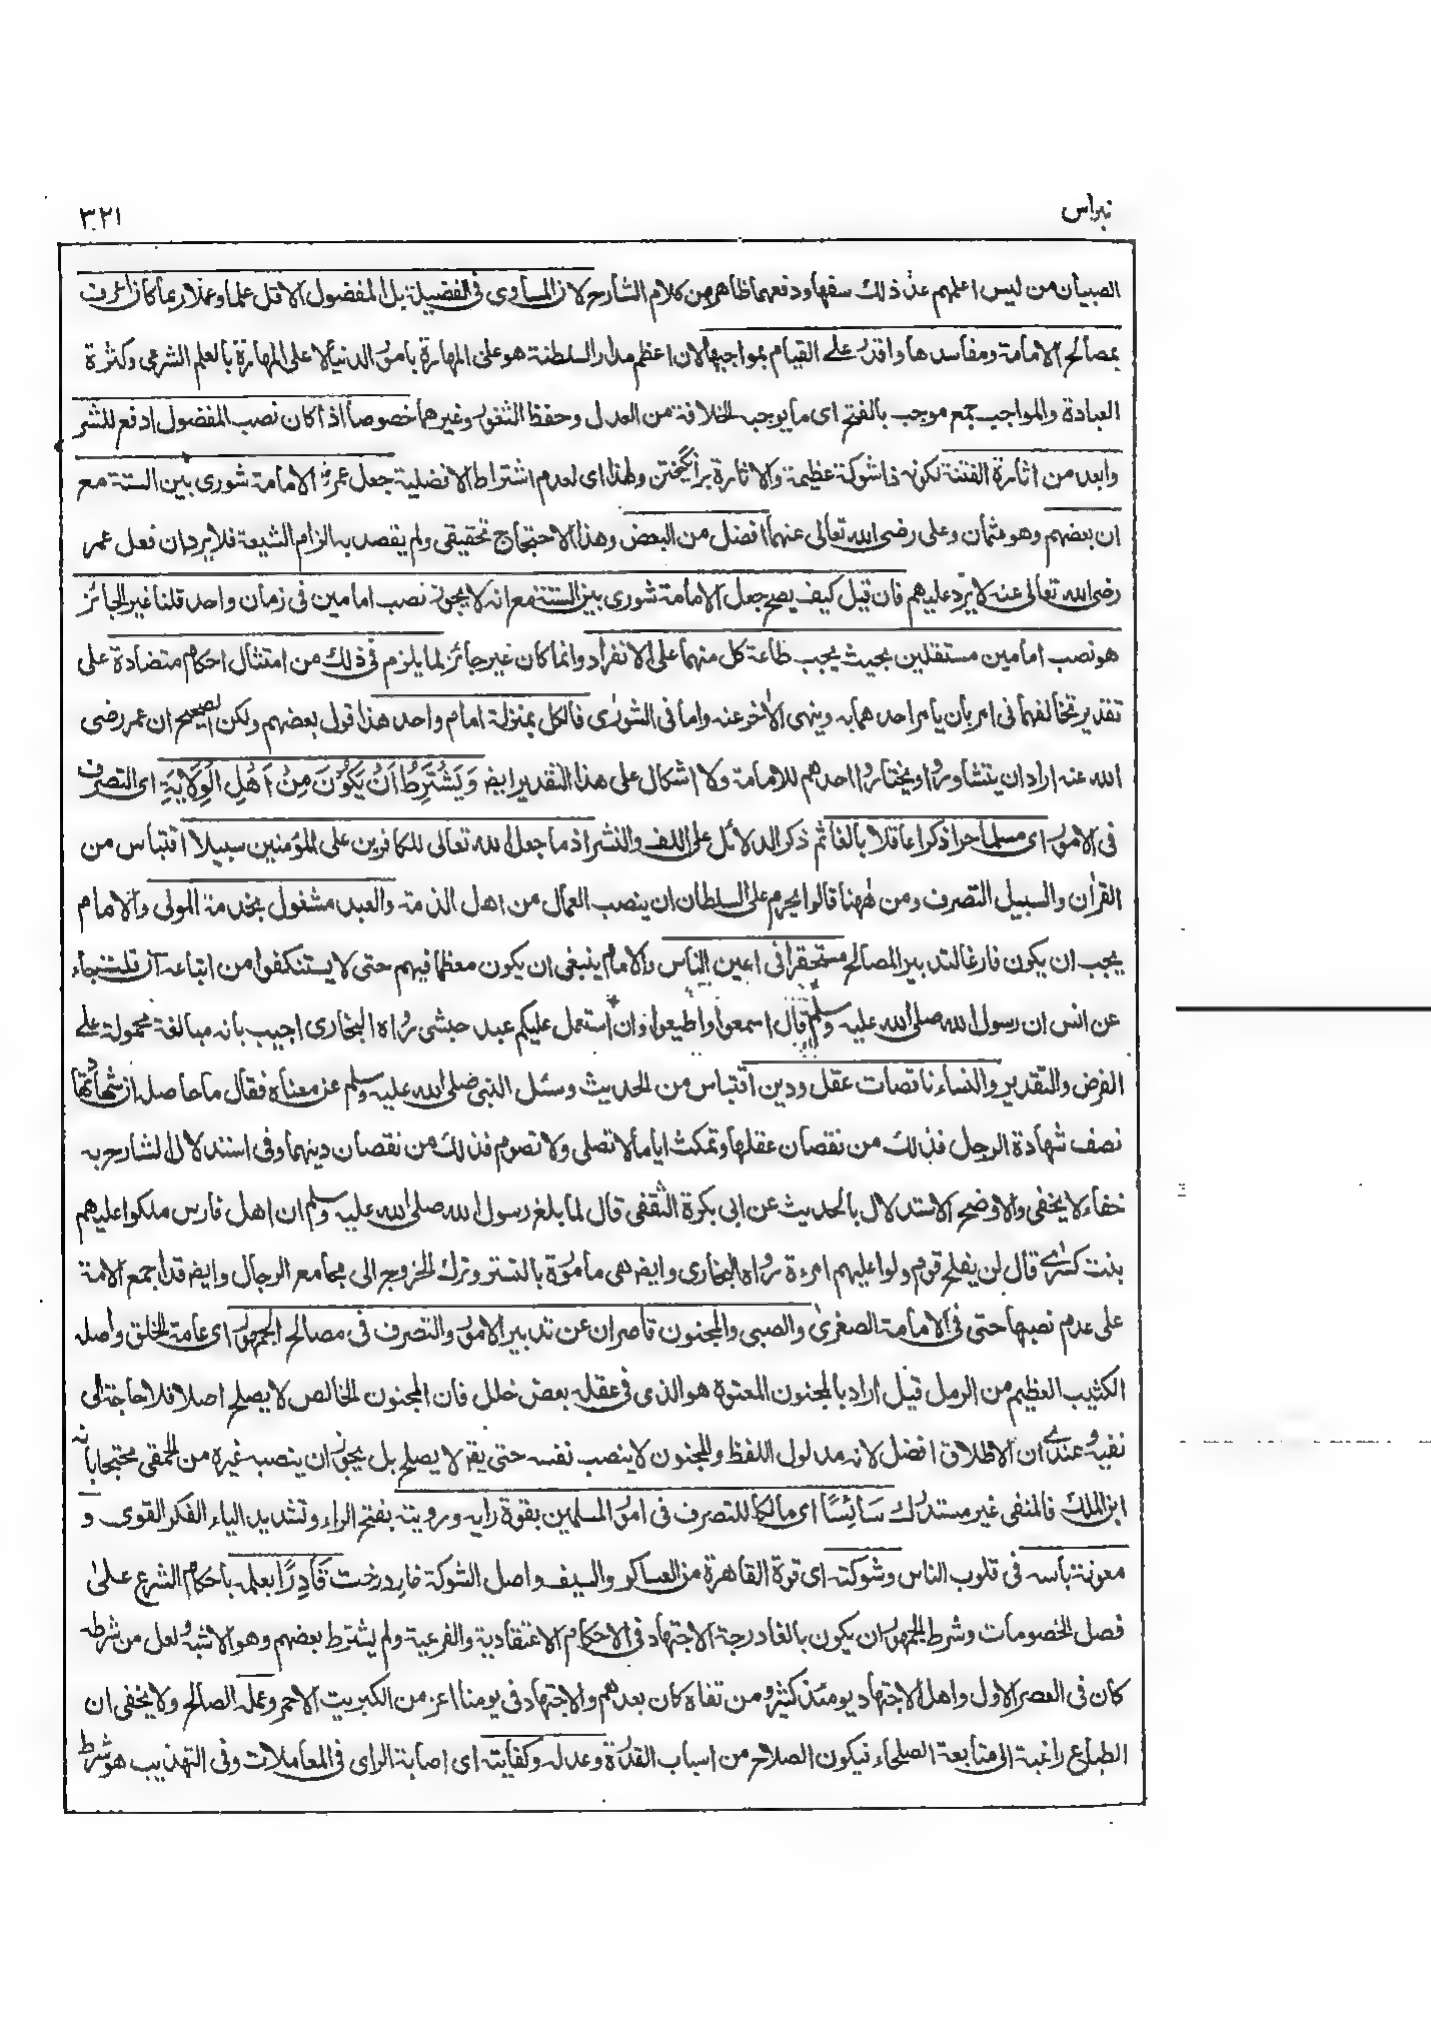 نبراس
٣٢١
الصبيان من ليس اعلمهم عد ذلك سفها ودفعهما ظاهر من كلام الشارح لان المساوى فى الفضيلة بل المفضول الاقل علما وعملا ربما كان اعرف
بمصالح الامامة ومفاسدها واقدر على القيام بمواجبها لان اعظم مدار السلطنة هو على المهارة بامور الدنيا لا على المهارة بالعلم الشرعى وكثرة
العبادة والمواجب جمع موجب بالفتح اى ما يوجبه الخلافة من العدل وحفظ الثغور وغيرهما خصوصا اذا كان نصب المفضول ادفع للشر
وابعد من اثارة الفتنة لكونه ذا شوكة عظيمة والاثارة برانگيختن ولهذا اى لعدم اشتراط الافضلية جعل عمر الامامة شورى بين الستة مع
ان بعضهم وهو عثمان وعلى رضى الله تعالى عنهما افضل من البعض وهذا الاحتجاج تحقيقى ولم يقصد به الزام الشيعة فلا يرد ان فعل عمر
رضى الله تعالى عنه لا يرد عليهم فان قيل كيف يصح جعل الامامة شورى بين الستة مع انه لا يجوز نصب امامين فى زمان واحد قلنا غير الجائز
هو نصب امامين مستقلين بحيث يجب طاعة كل منهما على الانفراد وانما كان غير جائز لما يلزم فى ذلك من امتثال احكام متضادة على
تقدير تخالفهما فى امر بان يامر احدهما به وينهى الاخر عنه واما فى الشورى فالكل بمنزلة امام واحد هذا قول بعضهم ولكن الصحيح ان عمر رضى
الله عنه اراد ان يتشاوروا ويختاروا احدهم للامامة ولا اشكال على هذا التقدير ايضا وَيَشْتَرِطُ اَنْ يَكُوْنَ مِنْ اَهْلِ الْوِلَايَةِ اى التصرف
فى الامور اى مسلما حرا ذكرا عاقلا بالغا ثم ذكر الدلائل على اللف والنشر اذ ما جعل الله تعالى للكافرين على المؤمنين سبيلا اقتباس من
القرآن والسبيل التصرف ومن ههنا قالوا يحرم على السلطان ان ينصب العمال من اهل الذمة والعبد مشغول بخدمة المولى والامام
يجب ان يكون فارغا لتدبير المصالح مستحقرا فى اعين الناس والامام ينبغى ان يكون معظما فيهم حتى لا يستنكفوا من اتباعه ان قلت جاء
عن انس ان رسول الله صلى الله عليه وسلم قال اسمعوا واطيعوا وان استعمل عليكم عبد حبشى رواه البخارى اجيب بانه مبالغة محمولة على
الفرض والتقدير والنساء ناقصات عقل ودين اقتباس من الحديث وسئل النبى صلى الله عليه وسلم عن معناه فقال ما حاصله ان شهادتها
نصف شهادة الرجل فذلك من نقصان عقلها وتمكث اياما لا تصلى ولا تصوم فذلك من نقصان دينها وفى استدلال الشارح به
خفاء لا يخفى والاوضح الاستدلال بالحديث عن ابى بكرة الثقفى قال لما بلغ رسول الله صلى الله عليه وسلم ان اهل فارس ملكوا عليهم
بنت كسرى قال لن يفلح قوم ولوا عليهم امرءة رواه البخارى وايضا هى مامورة بالتستر وترك الخروج الى مجامع الرجال وايضا قد اجمع الامة
على عدم نصبها حتى فى الامامة الصغرى والصبى والمجنون قاصران عن تدبير الامور والتصرف فى مصالح الجمهور اى عامة الخلق واصله
الكثيب العظيم من الرمل قيل اراد بالمجنون المعتوه هو الذى فى عقله بعض خلل فان المجنون الخالص لا يصلح اصلا فلا حاجة الى
نفيه وعندى ان الاطلاق افضل لانه مدلول اللفظ والمجنون لا ينصب نفسه حتى يقم لا يصلح بل يجوز ان ينصبه غيره من الحمقى محتجا بانه
ابن الملك فالمنفى غير مستدرك سَائِسًا اى مالكا للتصرف فى امور المسلمين بقوة رايه ورويته بفتح الراء وتشديد الياء الفكر القوى و
معونة باسه فى قلوب الناس وشوكته اى قوة القاهرة من العساكر والسيف واصل الشوكة خار درخت قَادِرًا بعلمه باحكام الشرع على
فصل الخصومات وشرط الجمهور ان يكون بالغا درجة الاجتهاد فى الاحكام الاعتقادية والفرعية ولم يشترط بعضهم وهو الاشبه ولعل من شرطه
كان فى العصر الاول واهل الاجتهاد يومئذ كثيرو من تفاه كان بعدهم والاجتهاد فى يومنا اعز من الكبريت الاحمر وعمله الصالح ولا يخفى ان
الطباع راغبة الى متابعة الصلحاء فيكون الصلاح من اسباب القدرة وعدله وكفايته اى اصابة الراى فى المعاملات وفى التهذيب هو شرط